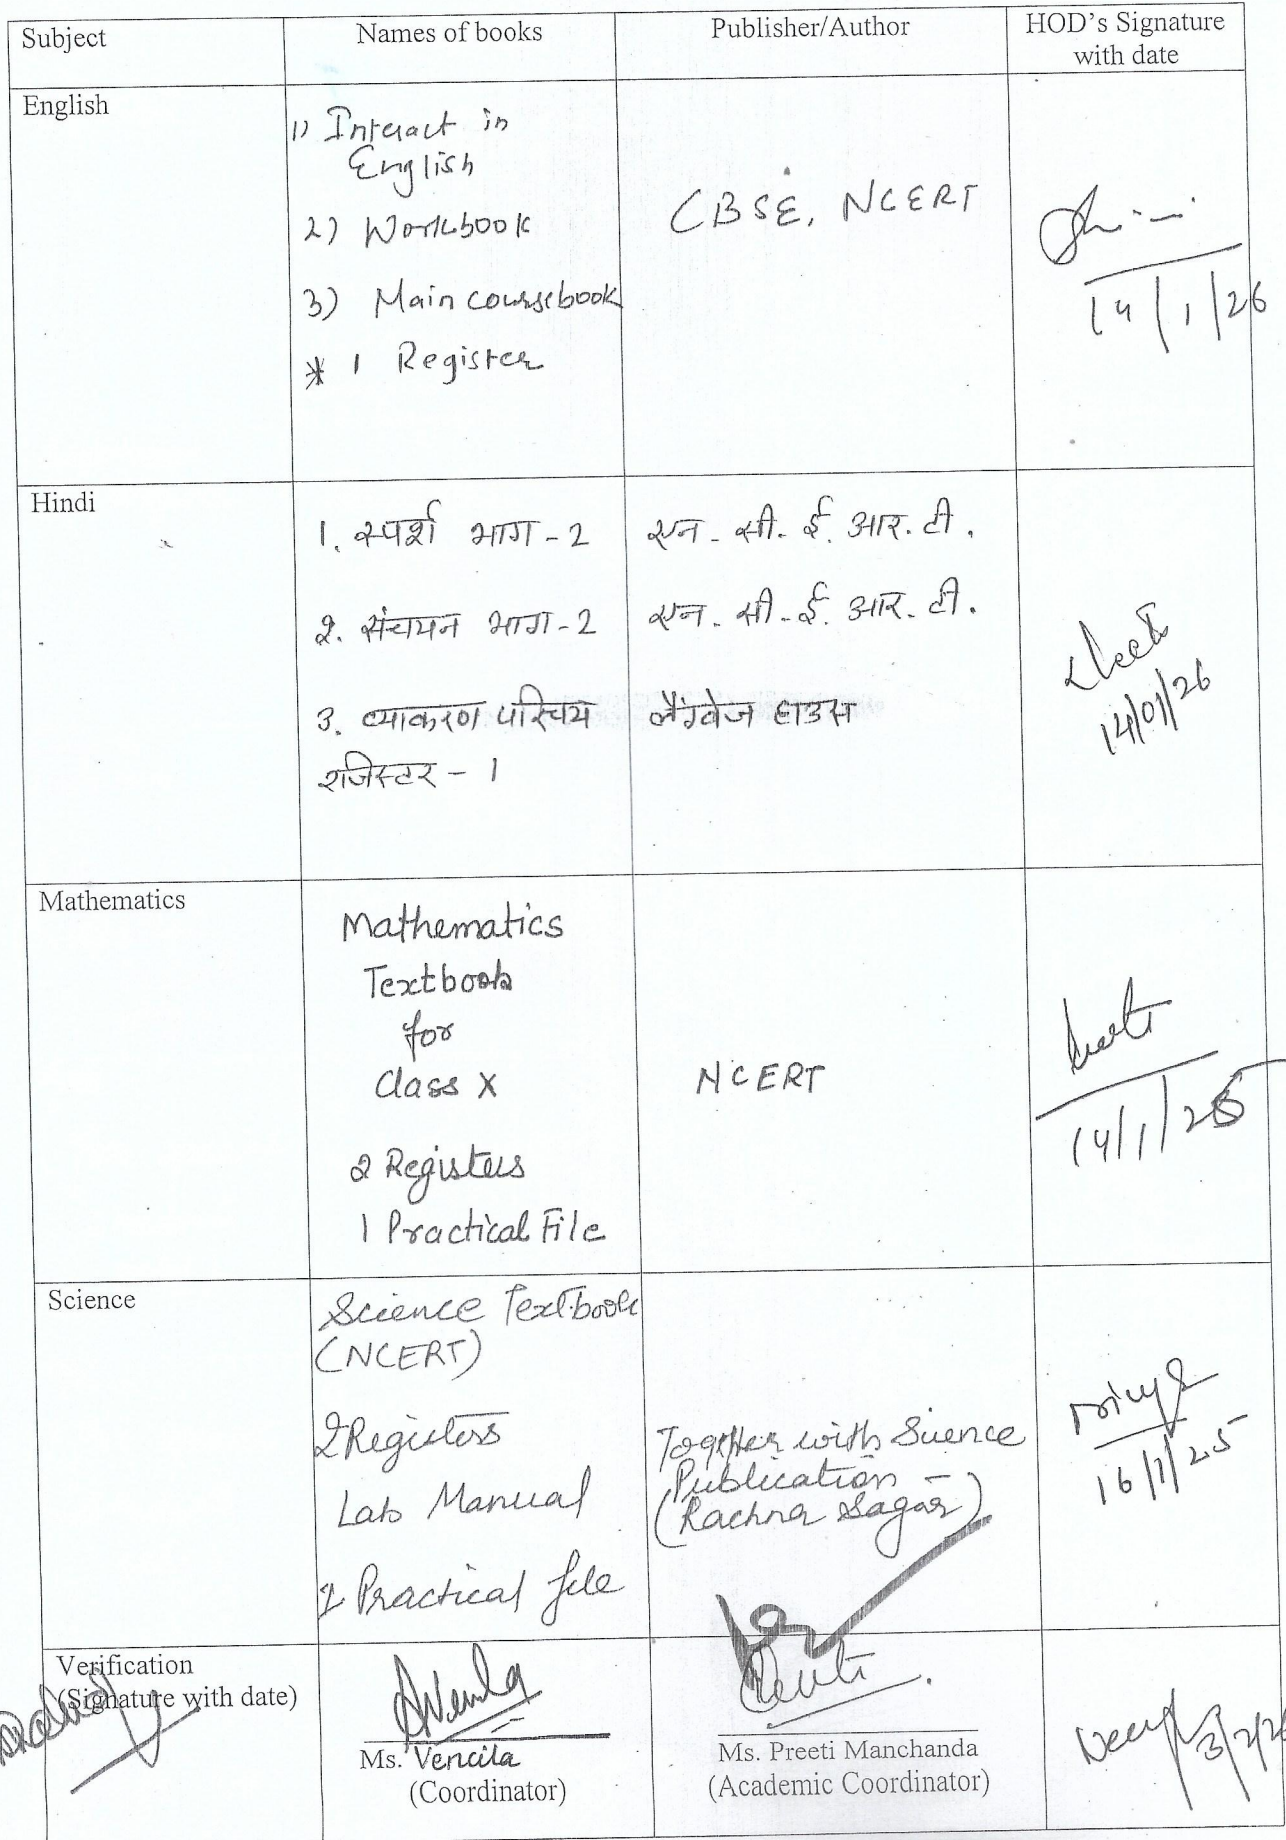 Subject Names of books Publisher/Author HOD's Signature
with date
English
1) Interact in
English
2) Workbook
3) Main coursebook
* 1 Register
CBSE, NCERT
14/1/26
Hindi
1. स्पर्श भाग-2 एन. सी. ई. आर. टी.
2. संचयन भाग-2 एन. सी. ई. आर. टी.
3. व्याकरण परिचय लैंग्वेज हाउस
रजिस्टर - 1
14/01/26
Mathematics
Mathematics
Textbook
for
Class X
2 Registers
1 Practical File
NCERT
14/1/26
Science
Science Textbook
(NCERT)
2 Registers
Lab Manual
1 Practical file
Together with Science
Publication -
(Rachna Sagar)
16/1/25
Verification
(Signature with date)
Ms. Vencila
(Coordinator)
Ms. Preeti Manchanda
(Academic Coordinator)
3/2/26